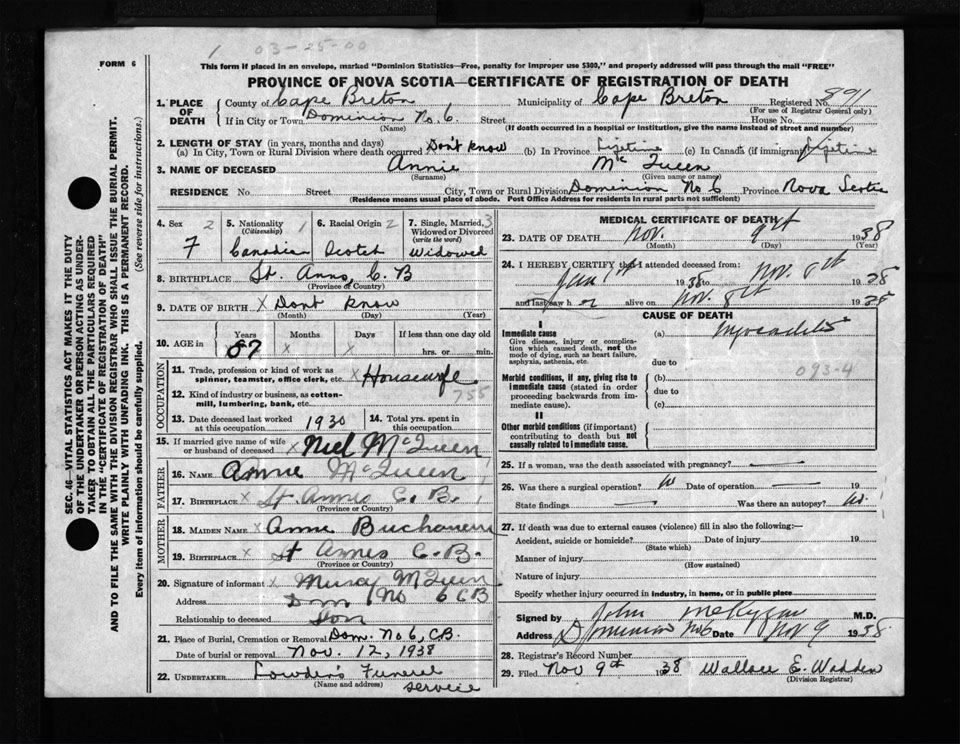 1 03-25-00
FORM 6
This form if placed in an envelope, marked "Dominion Statistics—Free, penalty for improper use $300," and properly addressed will pass through the mail "FREE"
PROVINCE OF NOVA SCOTIA—CERTIFICATE OF REGISTRATION OF DEATH
SEC. 46—VITAL STATISTICS ACT MAKES IT THE DUTY
OF THE UNDERTAKER OR PERSON ACTING AS UNDER-
TAKER TO OBTAIN ALL THE PARTICULARS REQUIRED
IN THE "CERTIFICATE OF REGISTRATION OF DEATH"
AND TO FILE THE SAME WITH THE DIVISION REGISTRAR WHO SHALL ISSUE THE BURIAL PERMIT.
WRITE PLAINLY WITH UNFADING INK. THIS IS A PERMANENT RECORD.
Every item of information should be carefully supplied. (See reverse side for instructions.)
1. PLACE OF DEATH County of Cape Breton Municipality of Cape Breton Registered No. 891
(For use of Registrar General only)
If in City or Town Dominion No. 6. Street House No.
(Name) (If death occurred in a hospital or institution, give the name instead of street and number)
2. LENGTH OF STAY (in years, months and days)
(a) In City, Town or Rural Division where death occurred Don't know (b) In Province Lifetime (c) In Canada (if immigrant) Lifetime
3. NAME OF DECEASED Annie Mc Queen
(Surname) (Given name or names)
RESIDENCE No. Street City, Town or Rural Division Dominion No 6 Province Nova Scotia
(Residence means usual place of abode. Post Office Address for residents in rural parts not sufficient)
4. Sex 2 F
5. Nationality (Citizenship) 1 Canadian
6. Racial Origin 2 Scotch
7. Single, Married, Widowed or Divorced (write the word) 3 Widowed
8. BIRTHPLACE St. Anns, C. B
(Province or Country)
9. DATE OF BIRTH X Dont know
(Month) (Day) (Year)
10. AGE in Years 87 Months X Days X If less than one day old hrs. or min.
OCCUPATION
11. Trade, profession or kind of work as spinner, teamster, office clerk, etc. X Housewife
12. Kind of industry or business, as cotton-mill, lumbering, bank, etc. 755
13. Date deceased last worked at this occupation 1930
14. Total yrs. spent in this occupation
15. If married give name of wife or husband of deceased X Niel McQueen
FATHER
16. NAME Annie McQueen
17. BIRTHPLACE X St Annes C. B.
(Province or Country)
MOTHER
18. MAIDEN NAME X Anne Buchanen
19. BIRTHPLACE X St Annes C. B.
(Province or Country)
20. Signature of informant X McQueen
Address Dom No 6 CB
Relationship to deceased Son
21. Place of Burial, Cremation or Removal Dom. No 6, C.B.
Date of burial or removal Nov. 12, 1938
22. UNDERTAKER Funeral service
(Name and address)
MEDICAL CERTIFICATE OF DEATH
23. DATE OF DEATH Nov. 9th 1938
(Month) (Day) (Year)
24. I HEREBY CERTIFY that I attended deceased from:
1938 to Nov. 8th 1938
and last saw her alive on Nov. 8th 1938
CAUSE OF DEATH
I
Immediate cause (a) Myocarditis
Give disease, injury or complication which caused death, not the mode of dying, such as heart failure, asphyxia, asthenia, etc.
due to 093-4
Morbid conditions, if any, giving rise to immediate cause (stated in order proceeding backwards from immediate cause). (b)
due to
(c)
II
Other morbid conditions (if important) contributing to death but not causally related to immediate cause.
25. If a woman, was the death associated with pregnancy? —
26. Was there a surgical operation? No Date of operation — 19
State findings — Was there an autopsy? No.
27. If death was due to external causes (violence) fill in also the following:—
Accident, suicide or homicide? Date of injury 19
(State which)
Manner of injury
(How sustained)
Nature of injury
Specify whether injury occurred in industry, in home, or in public place
Signed by John M.D.
Address Dominion No6 Date Nov 9 1938
28. Registrar's Record Number
29. Filed Nov 9th 1938 Wallace E. Wadden
(Division Registrar)